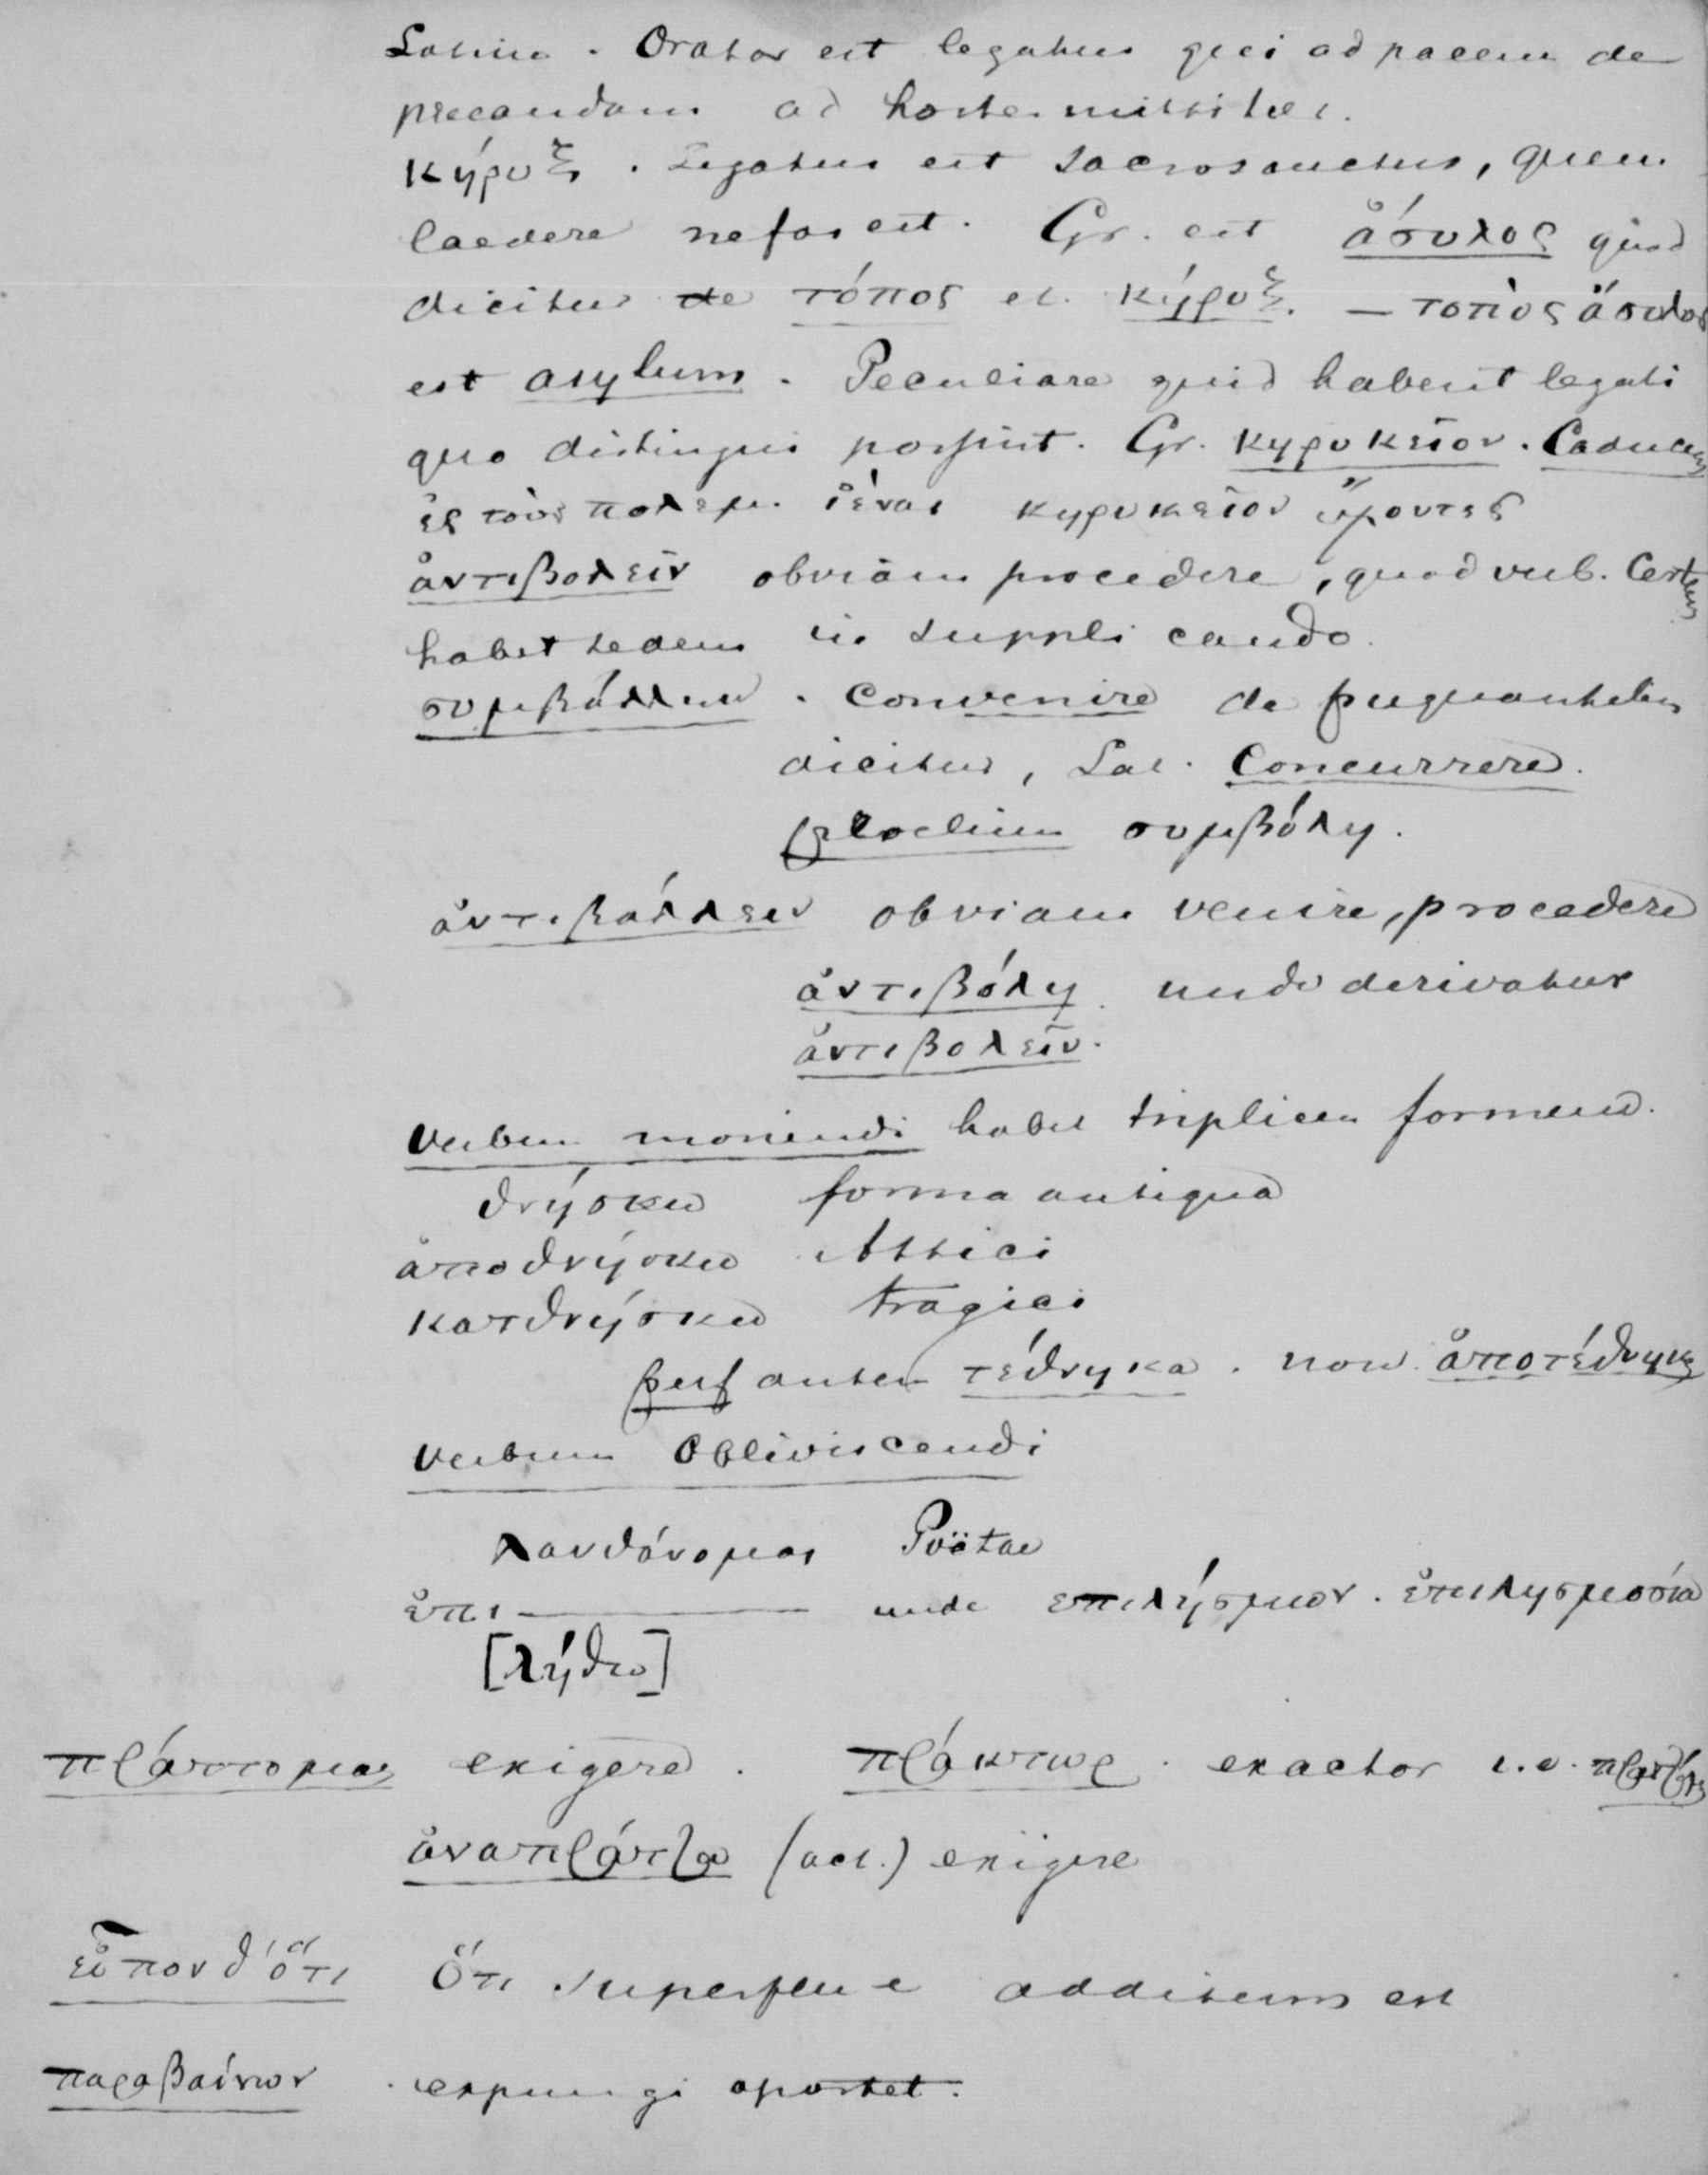 Latine. Orator est legatus qui ad pacem de
precandam ad hostes mittitur.
κήρυξ. Legatus est sacrosanctus, quem
laedere nefas est. Gr. est ἄσυλος quod
dicitur de τόπος et κήρυξ. — τοπὸς ἄσυλος
est asylum. Peculiare quid habent legati
quo distingui possint. Gr. κηρυκεῖον. Caduceus
ἐς τοὺς πολεμ. ἰέναι κηρυκεῖον
ἀντιβολεῖν obviam procedere, quod verb. Certam
habet sedem in supplicando.
συμβάλλειν. convenire de pugnantibus
dicitur, Lat. Concurrere.
proelium συμβόλη.
ἀντιβάλλειν obviam venire, procedere
ἀντιβόλη unde derivatur
ἀντιβολεῖν.
Verbum moriendi habet triplicem formam.
θνήσκω forma antiqua
ἀποθνήσκω Attici
κατθνήσκω tragici
perf autem τέθνηκα. non ἀποτέθνηκα
Verbum Obliviscendi
λανθάνομαι Poëtae
ἐπι— unde επιλήσμων. ἐπιλησμοσύνη
[λήθω]
πράττομαι exigere. πράκτωρ. exactor i.e.
ἀναπράττω (act.) exigere
εἶπον θ' ὅτι Ὅτι superflue additum est
παραβαίνων expungi oportet.